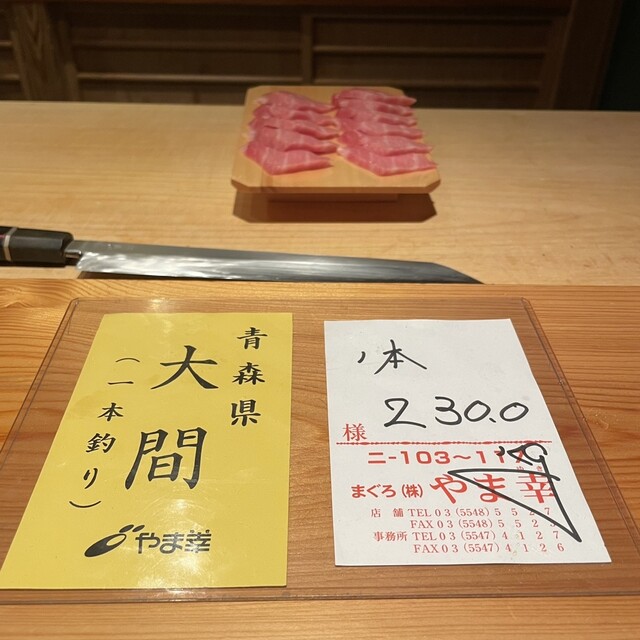 青森県
大間
(一本釣り)
やま幸
1本
230.0
KG
様
ニ-103~117
まぐろ(株)やま幸
店舗 TEL 03 (5548) 5527
FAX 03 (5548) 552
事務所 TEL 03 (5547) 4127
FAX 03 (5547) 4126